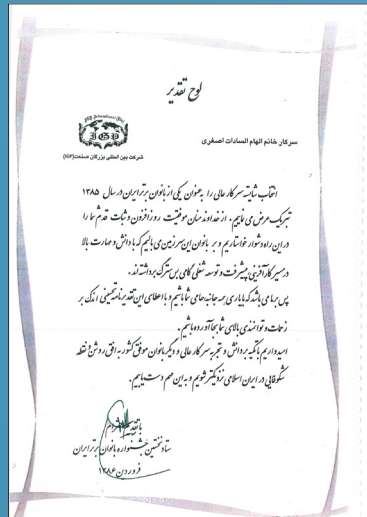 لوح تقدیر
IGP
شرکت بین المللی بزرگان صنعت(IGP)
سرکار خانم الهام السادات اصغری
انتخاب شایسته سرکار عالی را به عنوان یکی از بانوان برتر ایران در سال ۱۳۸۵
تبریک عرض می نماییم. از خداوند منان موفقیت روزافزون و ثبات قدم شما را
در این راه دشوار خواستاریم و بر بانوان این سرزمین می بالیم که با دانش و مهارت بالا
در مسیر کارآفرینی، پیشرفت و توسعه شغلی گامی بس سترگ برداشته اند.
پس بر ما می باشد که با یاری همه جانبه حامی شما باشیم و با اعطای این تقدیرنامه تحسینی اندک بر
زحمات و توانمندی بالای شما بجا آورده باشیم.
امیدواریم با تکیه بر دانش و تجربه سرکار عالی و دیگر بانوان موفق کشور به افق روشن و نقطه
شکوفایی در ایران اسلامی نزدیکتر شویم و به این مهم دست یابیم.
با تقدیم
ستاد نخستین جشنواره بانوان برتر ایران
فروردین ۱۳۸۶